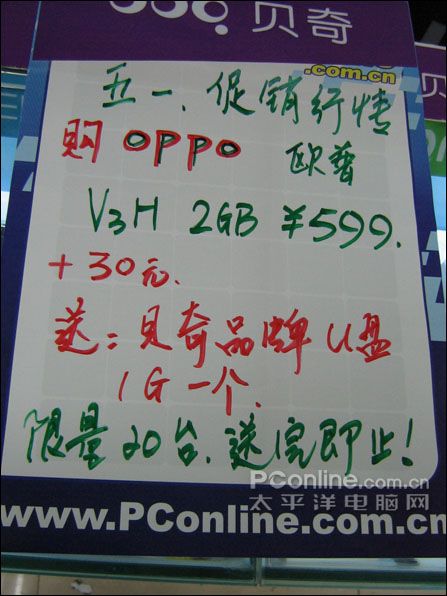 贝奇
.com.cn
五一、促销行情
购 OPPO 欧普
V3H 2GB ¥599.
+30元.
送：贝奇品牌U盘
1G一个.
限量20台.送完即止！
PConline.com.cn
太平洋电脑网
www.PConline.com.cn